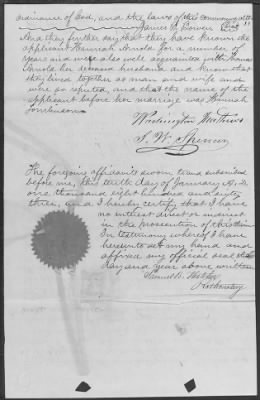 ordinance of God, and the laws of this Commonwealth
And they further say that they have known the
applicant Hannah Arnold for a number of
years and were also well acquainted with
Arnold her deceased husband and know that
they lived together as man and wife and
were so reputed, and that the name of the
applicant before her marriage was Hannah
Tomlinson
Washington Mathews
S. W. Spencer
The foregoing affidavit sworn to and subscribed
before me, this tenth day of January A.D.
one thousand eight hundred and sixty
three, and I hereby certify that I have
no interest direct or indirect
in the prosecution of this claim
In testimony whereof I have
hereunto set my hand and
affixed my official seal the
day and year above written
Prothonotary